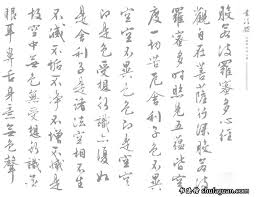 般若波羅蜜多心經
觀自在菩薩行深般若波
羅蜜多時照見五蘊皆空
度一切苦厄舍利子色不異
空空不異色色即是空空
即是色受想行識亦復如
是舍利子是諸法空相不生
不滅不垢不淨不增不減是
故空中無色無受想行識無
眼耳鼻舌身意無色聲
shufaguan.com